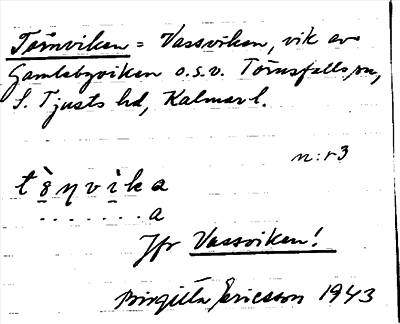 Törnviken = Vassviken, vik av
Gamlebyviken o.s.v. Törnsfalls sn,
S. Tjusts hd, Kalmar l.
n:r 3
tö̀ɳvìka
.......a
Jfr Vassviken!
Birgitta Ericsson 1943